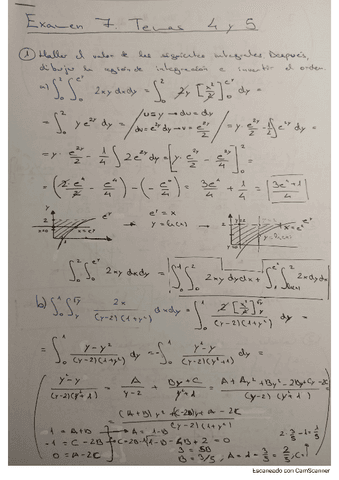 Examen 7. Temas 4 y 5
① Hallar el valor de las siguientes integrales. Después,
dibujar la región de integración e invertir el orden.
a) ∫₀² ∫₀^(e^y) 2xy dx dy = ∫₀² 2y [x²/2]₀^(e^y) dy =
= ∫₀² y e^(2y) dy = / u=y → du=dy / dv=e^(2y) dy → v = e^(2y)/2 / = y · e^(2y)/2 - 1/2 ∫ e^(2y) dy =
= y · e^(2y)/2 - 1/4 ∫ 2e^(2y) dy = [y · e^(2y)/2 - e^(2y)/4]₀² =
= (2 · e⁴/2 - e⁴/4) - (-e⁰/4) = 3e⁴/4 + 1/4 = (3e⁴+1)/4
e^y = x
y = ln(x)
x = e^y
∫₀² ∫₀^(e^y) 2xy dx dy = ∫₀¹ ∫₀² 2xy dy dx +
b) ∫₀¹ ∫_y^√y 2x/((y-2)(1+y²)) dx dy = ∫₀¹ 2[x²/2]_y^√y/((y-2)(1+y²)) dy =
= ∫₀¹ (y-y²)/((y-2)(1+y²)) dy = -∫₀¹ (y²-y)/((y-2)(1+y²)) dy =
(y²-y)/((y-2)(y²+1)) = A/(y-2) + (By+C)/(y²+1) = (A+Ay²+By²-2By+Cy-2C)/((y-2)(y²+1))
= ((A+B)y²+(C-2B)y+A-2C)/((y-2)(y²+1))
1 = A+B
-1 = C-2B
0 = A-2C
A = 1-B
C = 2B-1
B = 3/5
Escaneado con CamScanner